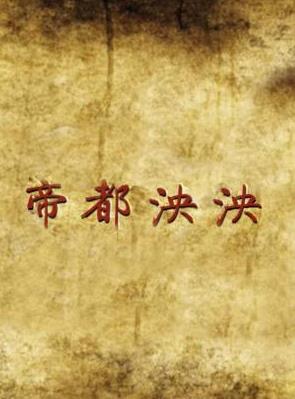 帝都泱泱